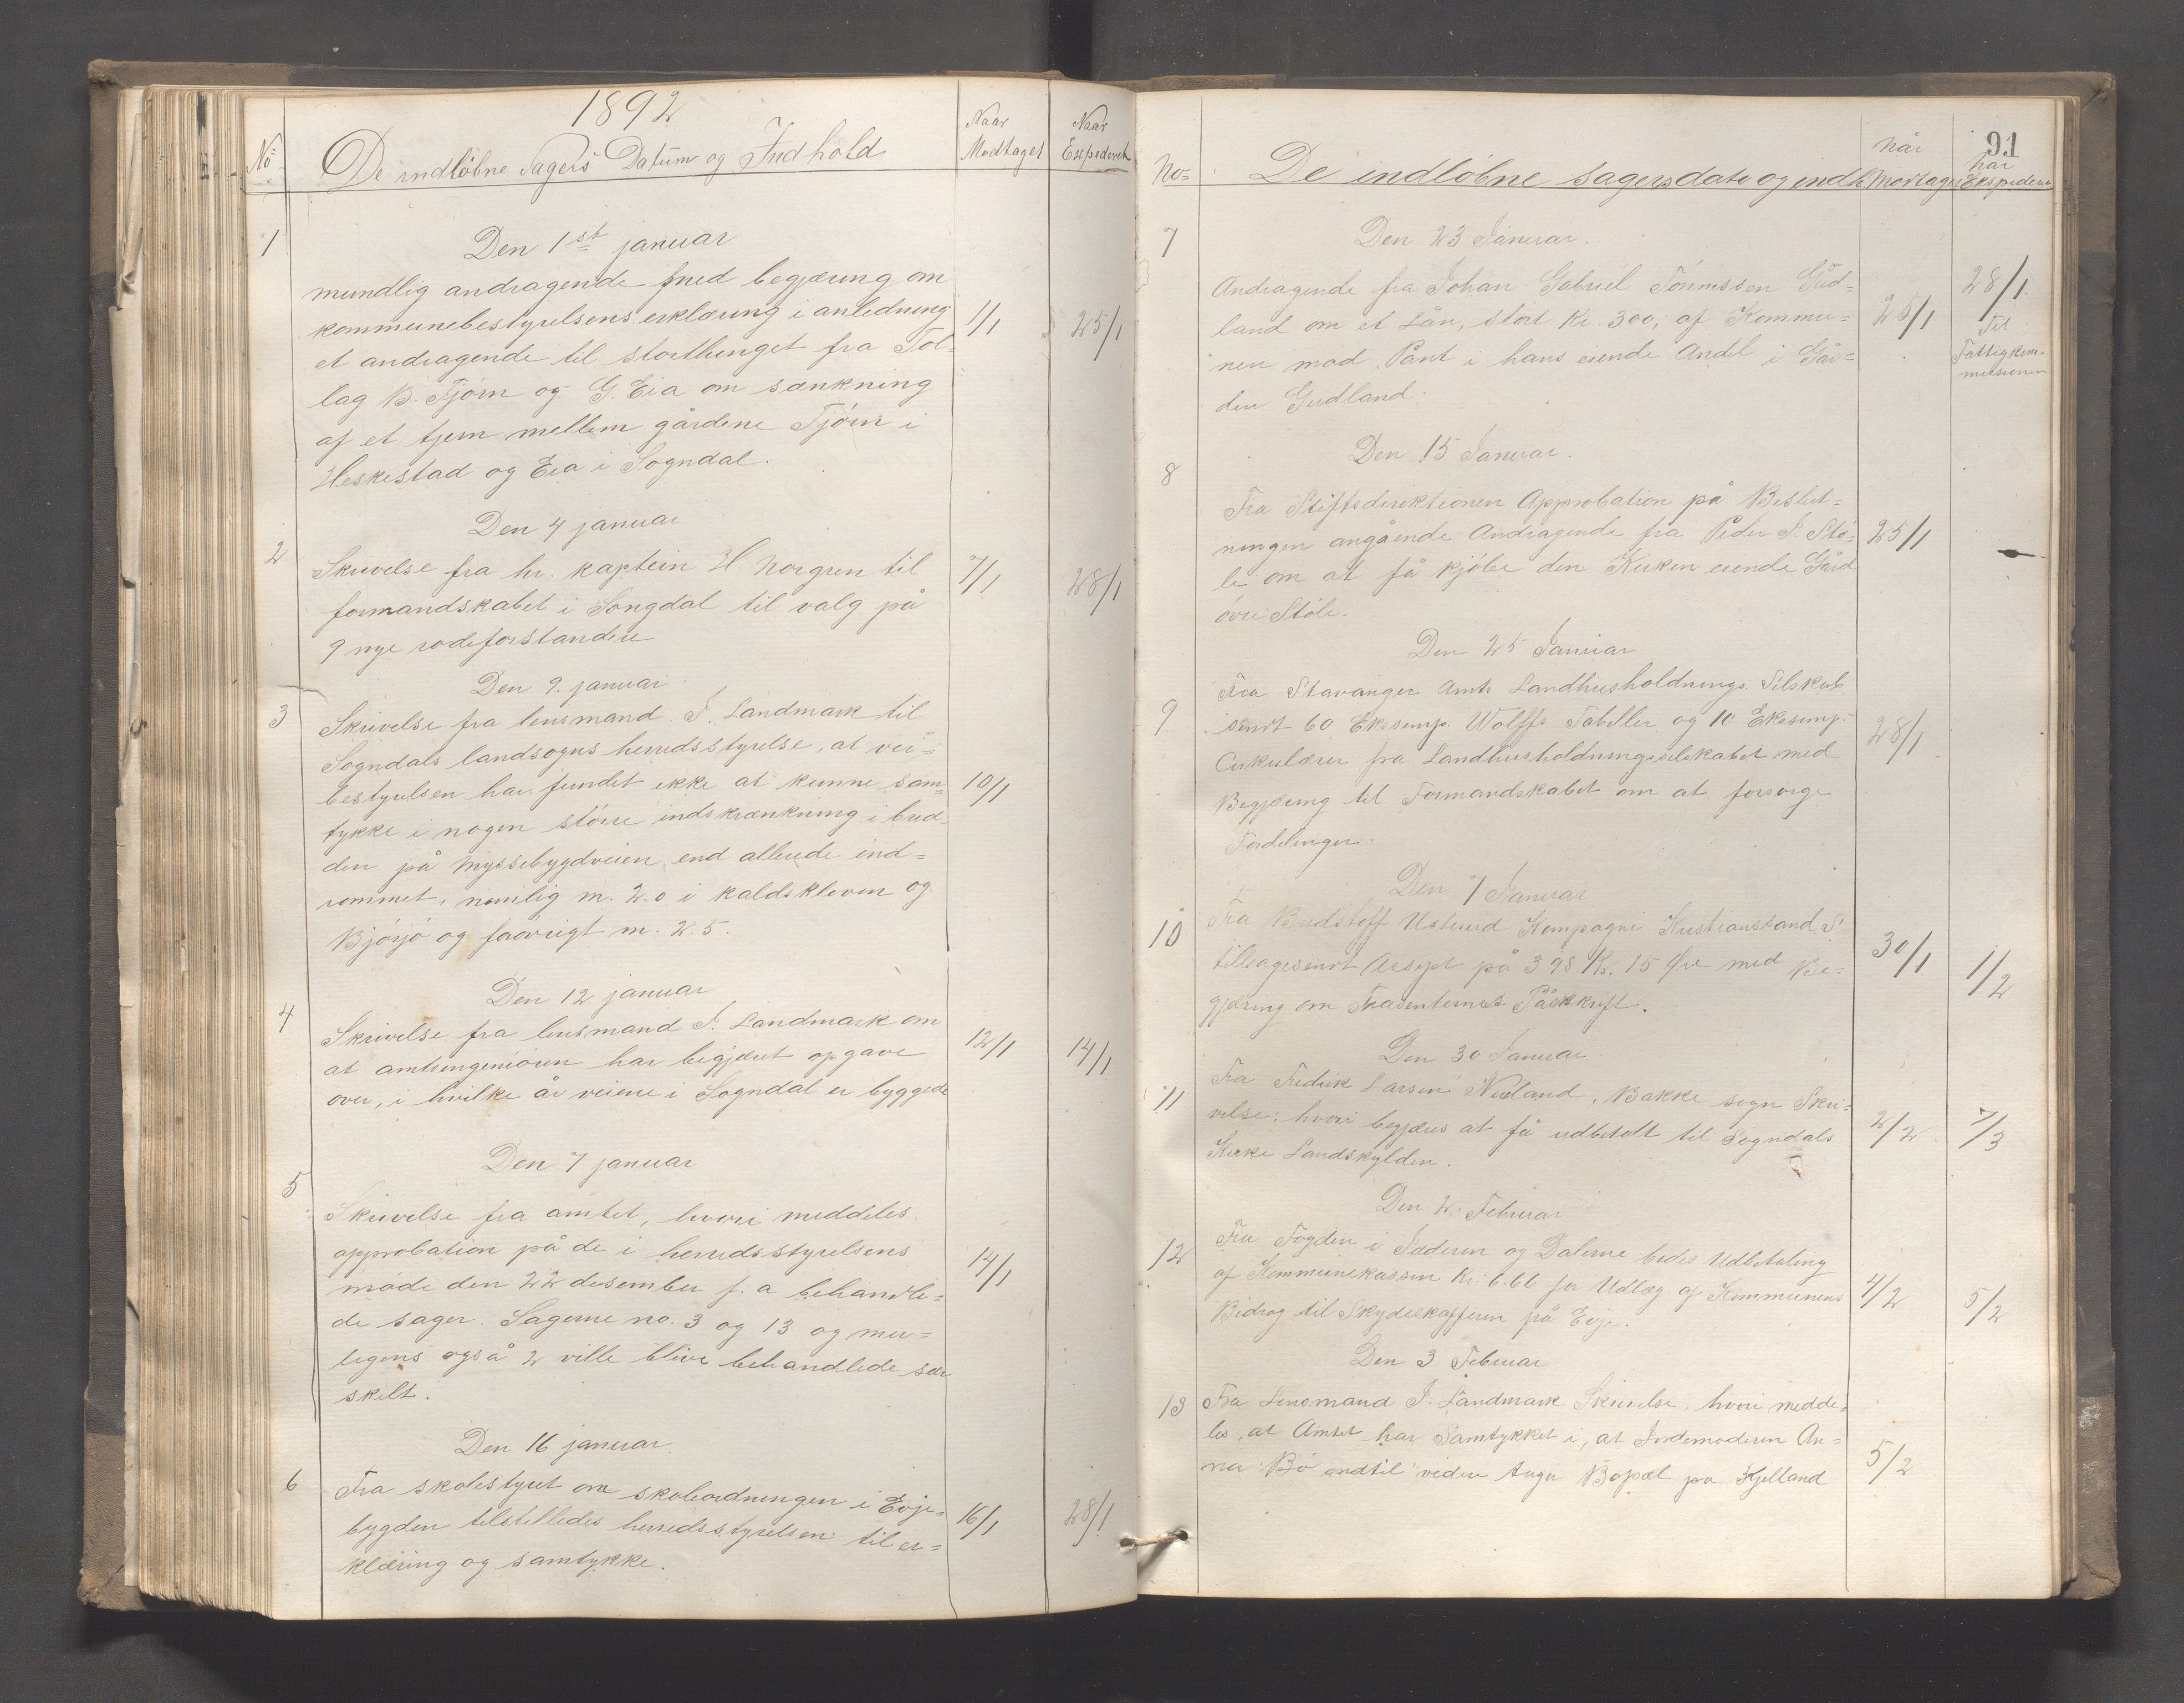 1892
No
De indløbne Sagers Datum og Indhold
Naar Modtaget
Naar Exspederet
1
Den 1st januar
mundlig andragende med begjæring om
kommunebestyrelsens erklæring i anledning
et andragende til storthinget fra Tol-
lag B. Tjørn og G. Eia om sænkning
af et tjern mellem gårdene Tjørn i
Heskestad og Eia i Sogndal.
1/1
25/1
Den 4 januar
2
Skrivelse fra hr. kaptein H. Norgren til
formandskabet i Songdal til valg på
9 nye rodeforstandere
7/1
28/1
Den 9. januar
3
Skrivelse fra lensmand J. Landmark til
Sogndals landsogns herredsstyrelse, at vei-
bestyrelsen har fundet ikke at kunne sam-
tykke i nogen større indskrænkning i bred-
den på Myssebygdveien, end allerede ind-
rømmet, nemlig m. 2.0 i Kaldskleven og
Bjørjø og forøvrigt m. 2.5.
10/1
Den 12 januar
4
Skrivelse fra lensmand J. Landmark om
at amtsingeniøren har begjæret opgave
over, i hvilke år veiene i Sogndal er byggede
12/1
14/1
Den 7 januar
5
Skrivelse fra amtet, hvori meddeles
approbation på de i herredsstyrelsens
møde den 22 desember f. a behandle-
de sager. Sagerne no. 3 og 13 og mu-
ligens også 2 ville blive behandlede sær
skilt.
14/1
Den 16 januar.
6
Fra skolestyret om skoleordningen i Evje-
bygden tilstilledes herredsstyrelsen til er-
klæring og samtykke.
16/1
28/1
91
No
De indløbne sagers dato og indh.
når Mottaget
når Ekspederet
7
Den 23 Januar.
Andragende fra Johan Gabriel Tønnessen Gud-
land om et Lån, stort Kr. 300, af Kommu-
nen mod Pant i hans eiende Andel i Går-
den Gudland.
25/1
28/1
Til
Fattigkom-
missionen
Den 15 Januar.
8
Fra Stiftsdirektionen Approbation på Beslut-
ningen angående Andragende fra Peder J. Stø-
le om at få kjøbe den Kirken eiende Gård
øvre Støle.
25/1
Den 25 Januar
9
Fra Stavanger Amts Landhusholdnings Selskab
sendt 60 Eksemp. Wolffs Tabeller og 10 Eksemp.
Cirkulærer fra Landhusholdningsselskabet med
Begjæring til Formandskabet om at forsørge
Fordelingen.
28/1
Den 7 Januar
10
Fra Kristiansand S.
tilbagesendt Aksept på 398 Kr. 15 Øre med Be-
gjæring om Trasenternes Påskrift.
30/1
1/2
Den 30 Januar
11
Fra Fredrik Larsen Nuland, Bakke sogn Skri-
velse: hvori begjæres at få udbetalt til Sogndals
Kirke Landskylden.
2/2
7/3
Den 2. Februar
12
Fra Fogden i Jæderen og Dalerne bedes Udbetaling
af Kommunekassen Kr. 6.66 for Udlæg af Kommunens
Bidrag til Skydsskafferen på Evje.
4/2
5/2
Den 3 Februar
13
Fra Lensmand J. Landmark Skrivelse, hvori medde-
les, at Amtet har Samtykket i, at Jordemoderen An-
na Bø indtil videre tager Bopæl på Kjelland
5/2